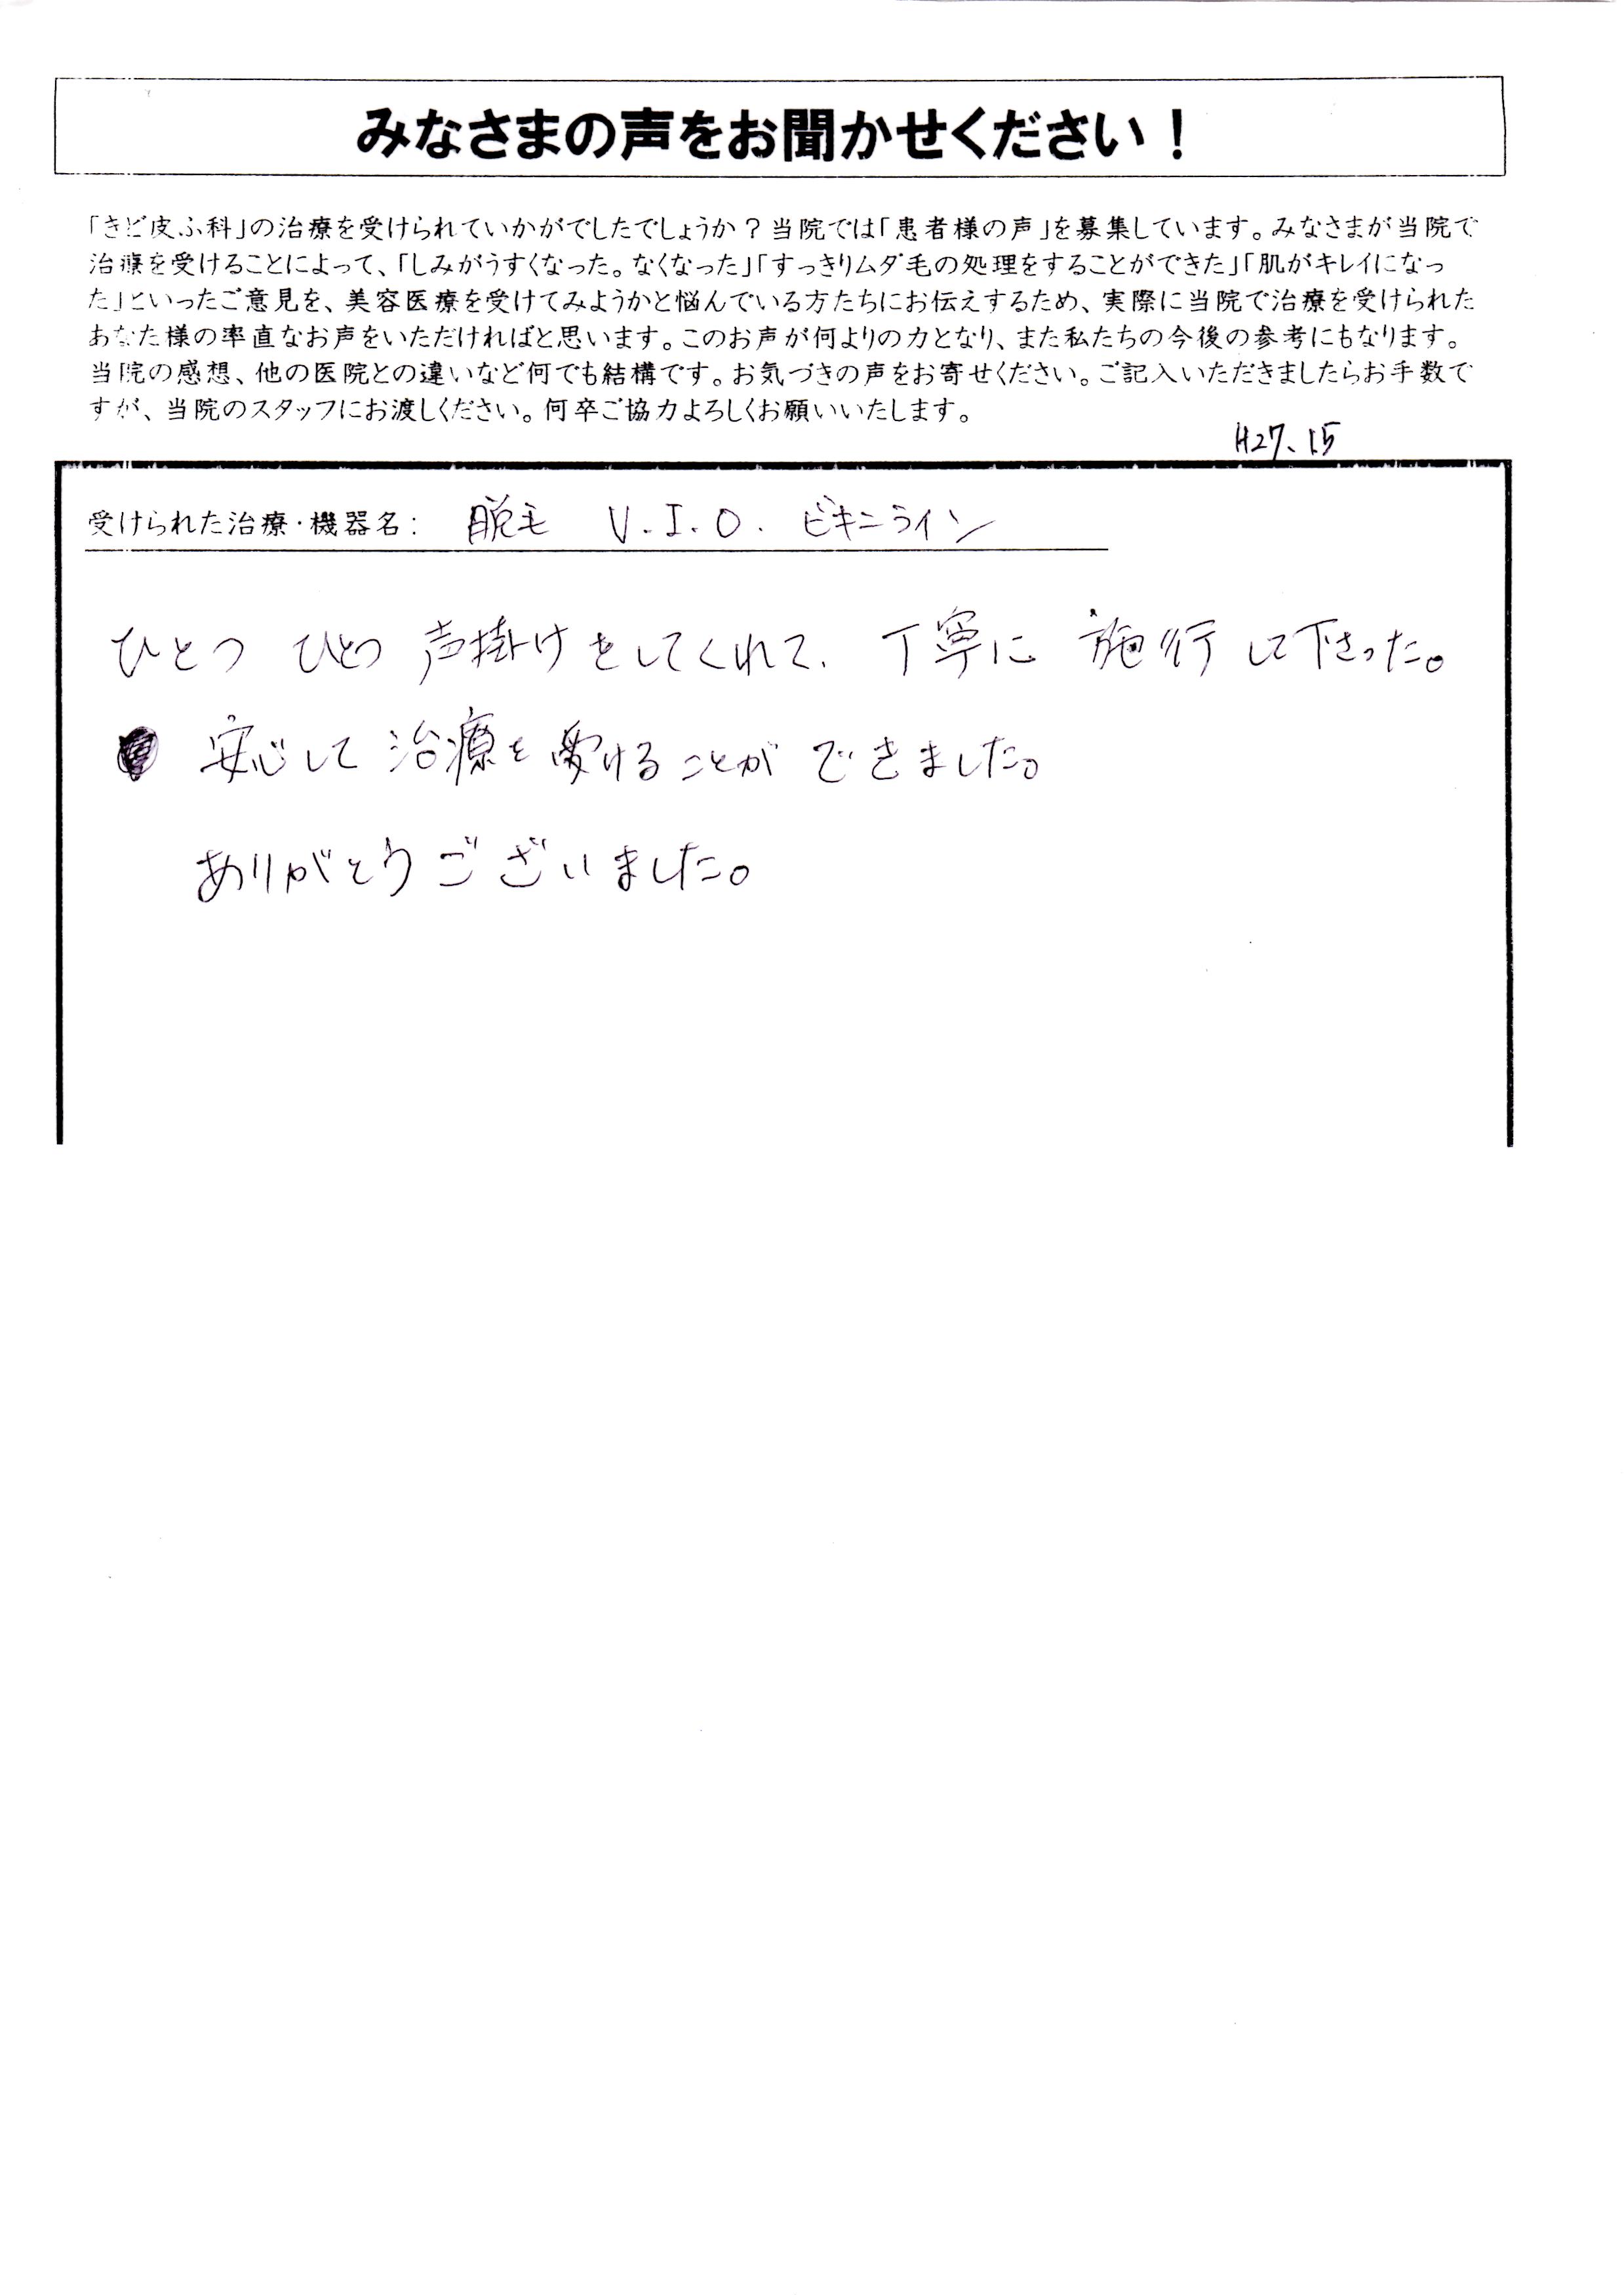 みなさまの声をお聞かせください！
「きど皮ふ科」の治療を受けられていかがでしたでしょうか？当院では「患者様の声」を募集しています。みなさまが当院で
治療を受けることによって、「しみがうすくなった。なくなった」「すっきりムダ毛の処理をすることができた」「肌がキレイになっ
た」といったご意見を、美容医療を受けてみようかと悩んでいる方たちにお伝えするため、実際に当院で治療を受けられた
あなた様の率直なお声をいただければと思います。このお声が何よりの力となり、また私たちの今後の参考にもなります。
当院の感想、他の医院との違いなど何でも結構です。お気づきの声をお寄せください。ご記入いただきましたらお手数で
すが、当院のスタッフにお渡しください。何卒ご協力よろしくお願いいたします。
H27.15
受けられた治療・機器名： 脱毛 V.I.O. ビキニライン
ひとつ ひとつ 声掛けをしてくれて、丁寧に 施行して下さった。
安心して治療を受けることができました。
ありがとうございました。